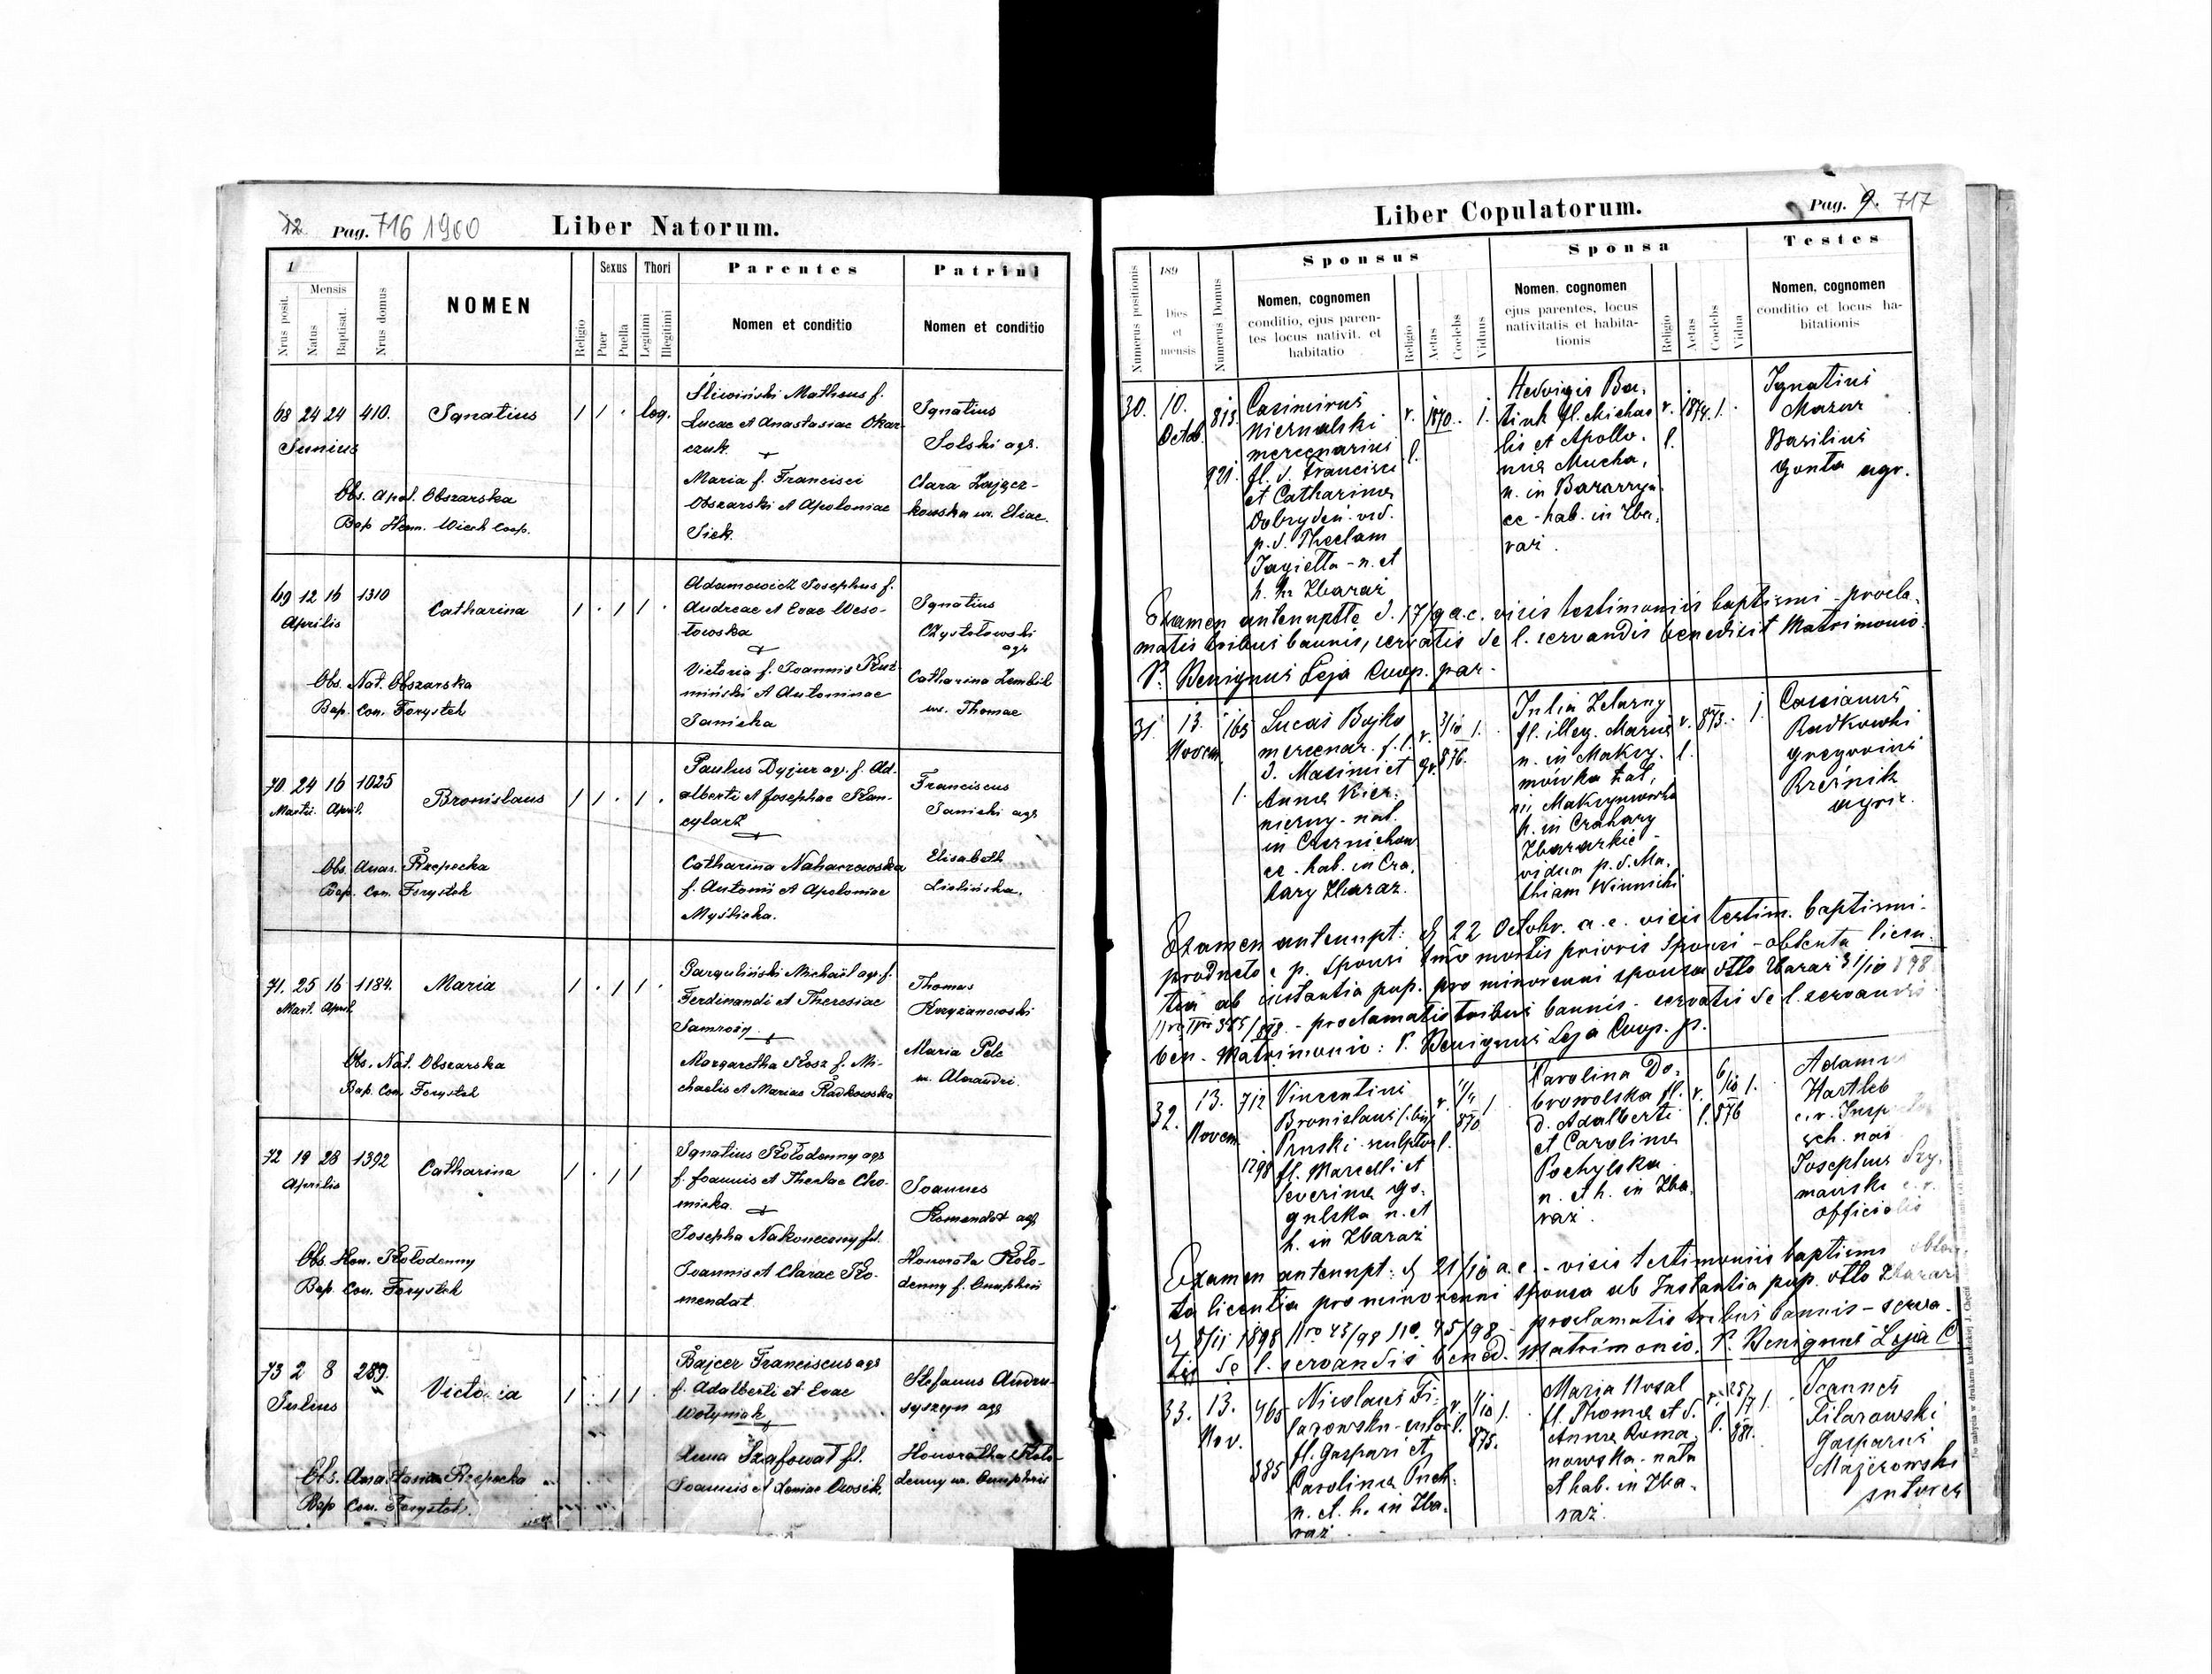 12 Pag. 716 1900 Liber Natorum.
1
Nrus posit.
Mensis
Natus
Baptisat.
Nrus domus
NOMEN
Religio
Sexus
Puer
Puella
Thori
Legitimi
Illegitimi
Parentes
Nomen et conditio
Patrini
Nomen et conditio
68 24 24 410. Ignatius 1 1 . leg.
Junius
Śliwiński Matheus f.
Lucae et Anastasiae Okar-
czuk.
Maria f. Francisci
Obszarski et Apoloniae
Siek.
Ignatius
Solski agr.
Clara Zającz-
kowska ux. Eliae.
Obs. Apol. Obszarska
Bap. Herm. Wiech Coop.
69 12 16 1310 Catharina 1 . 1 1 .
Aprilis
Adamowicz Josephus f.
Andreae et Evae Weso-
łowska
Victoria f. Joannis Kuź-
miński et Antoninae
Janicka
Ignatius
Czystołowski
agr
Catharina Zembik
ux. Thomae
Obs. Nat. Obszarska
Bap. Con. Forystek
70 24 16 1025 Bronislaus 1 1 . 1 .
Martii. April.
Paulus Dyjur agr. f. Ad-
alberti et Josephae Kan-
cylarz
Catharina Naharzowska
f. Antonii et Apoloniae
Myślicka.
Franciscus
Janicki agr
Elisabeth
Lisińska.
Obs. Anas. Rzepecka
Bap. Con. Forystek
71. 25 16 1184. Maria 1 . 1 1 .
Mart. April.
Garguliński Michaël agr. f.
Ferdinandi et Theresiae
Samroży
Margaretha Kosz f. Mi-
chaelis et Mariae Radkowska
Thomas
Krzyżanowski
Maria Pelc
ux. Alexandri.
Obs. Nat. Obszarska
Bap. Con. Forystek
72 19 28 1392 Catharina 1 . 1 1
Aprilis
Ignatius Kołodenny agr
f. Joannis et Theclae Cho-
micka.
Josepha Nakoneczny fil.
Joannis et Clarae Ko-
mendat.
Joannes
Komendat agr
Honorata Koło-
denny f. Onuphrii
Obs. Hon. Kołodenny
Bap. Con. Forystek
73 2 8 289. Victoria 1 . 1 1 .
Julius
Bajcer Franciscus agr
f. Adalberti et Evae
Wołyniak
Anna Szafowat fil.
Joannis et Xeniae Owosik.
Stefanus Andru-
syszyn agr
Honoratha Koło-
denny ux. Onuphrii
Obs. Anastasia Rzepecka
Bap Con. Forystek.
Liber Copulatorum. Pag. 9. 717
Numerus positionis
189
Dies
et
mensis
Numerus Domus
Sponsus
Nomen, cognomen
conditio, ejus paren-
tes locus nativit. et
habitatio
Religio
Aetas
Coelebs
Viduus
Sponsa
Nomen, cognomen
ejus parentes, locus
nativitatis et habita-
tionis
Religio
Aetas
Coelebs
Vidua
Testes
Nomen, cognomen
conditio et locus ha-
bitationis
30. 10. 813.
Octob.
921.
Casimirus
Niernalski
mercenarius
fl. d. Francisci
et Catharinae
Dobrydeń - vid.
p. d. Theclam
Jagiełła - n. et
h. in Zbaraż
r. l. 1870. 1.
Hedvigis Ba-
tiuk fl. Michae
lis et Apollo-
niae Mucha,
n. in Bazarryn
ce - hab. in Zba-
raż.
r. l. 1874. 1.
Ignatius
Mazur
Basilius
Gonta agr.
Examen antenuptle d. 17/9 a. c. visis testimoniis baptismi - procla-
matis tribus bannis, servatis de l. servandis benedixit Matrimonio.
P. Benignus Leja Coop. par.
31. 13. 165
Novem.
1.
Lucas Bojko
mercenar. f. l.
d. Maximi et
Anna Kier-
nierny - nat.
in Czernichow
ce - hab. in Cza-
hary Zbaraz.
r. gr. 3/10 876. 1.
Julia Zelazny
fl. illeg. Mariae
n. in Maksy-
mówka hab.
in Maksymowka
h. in Czahary
Zbarazkie -
vidua p. d. Ma-
thiam Winnicki
r. l. 873. 1.
Cassianus
Radkowski
Gregorius
Rześnik
agric.
Examen antenupt: d 22 Octobr. a. c. visis testim. baptismi -
producto e p. sponsi tmo mortis prioris sponsi - obtenta licen-
tia ab instantia pup. pro minorenni sponso dtto Zbaraz 31/10 898
proclamatis tribus bannis - servatis de l. servandis
ben. Matrimonio: P. Benignus Leja Coop. p.
32. 13. 712
Novem.
1298
Vincentius
Bronislaus (bin)
Pruski sculptor
fl. Marcelli et
Severinae Go-
gulska n. et
h. in Zbaraż
r. l. 870 1
Carolina Do-
browolska fl.
d. Adalberti
et Carolinae
Pochylska
n. et h. in Zba-
raż.
r. l. 6/10 876 1.
Adamus
Hartleb
c. r. Insp
sch. nai
Josephus Szy-
mański c. r.
officialis
Examen antenupt: d 21/10 a. c. - visis testimoniis baptismi obten-
ta licentia pro minorenni sponsa ab Instantia pup. dtto Zbaraz
d 8/11 1898 Nro 43/98 proclamatis tribus bannis - serva-
tis de l. servandis bened. Matrimonio. P. Benignus Leja C.
33. 13. 465
Nov.
885
Nicolaus Fi-
larowski - sutor
fl. Gaspari et
Carolinae Puch-
n. et h. in Zba-
raż
r. l. 1/10 875. 1.
Maria Nosal
fl. Thomae et d.
Annae Roma-
nowska - nata
et hab. in Zba-
raż.
r. l. 25/7 881. 1.
Joannes
Filarowski
Gasparus
Majerowski
sutores